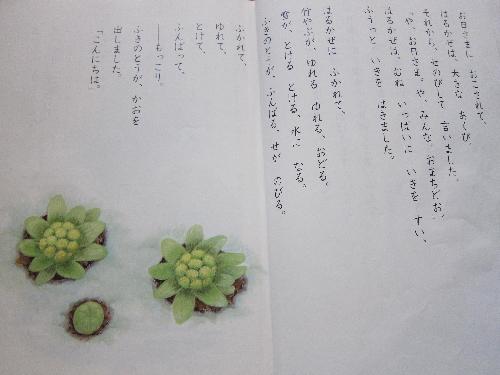 お日さまに おこされて、
はるかぜは、大きな あくび。
それから、せのびして 言いました。
「や、お日さま。や、みんな。おまちどお。」
はるかぜは、むね いっぱいに いきを すい、
ふうっと いきを はきました。
はるかぜに ふかれて、
竹やぶが、ゆれる ゆれる、おどる。
雪が、とける とける、水に なる。
ふきのとうが、ふんばる、せが のびる。
ふかれて、
ゆれて、
とけて、
ふんばって、
――もっこり。
ふきのとうが、かおを
出しました。
「こんにちは。」